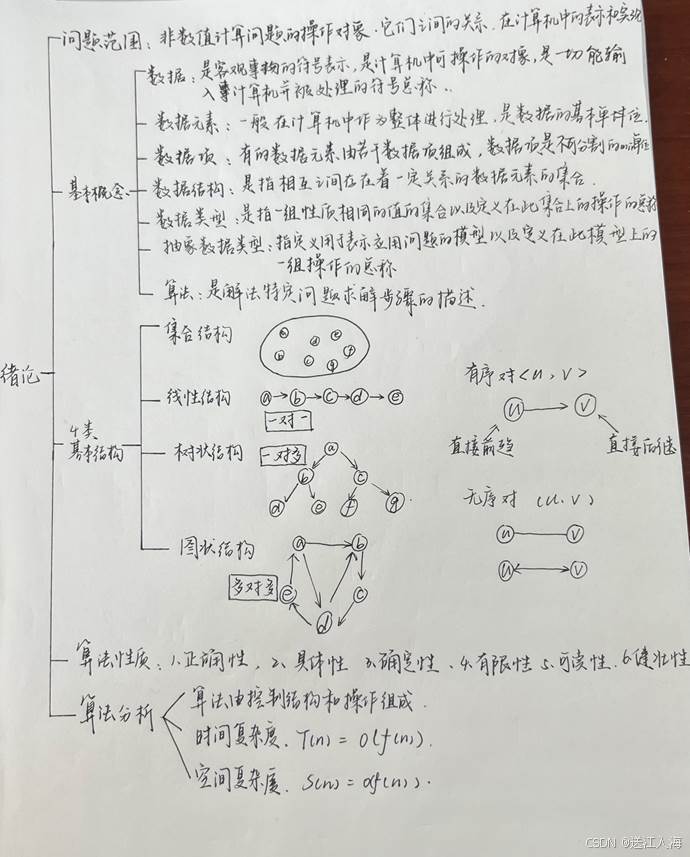 问题范围：非数值计算问题的操作对象．它们之间的关系．在计算机中的表示和实现
数据：是客观事物的符号表示，是计算机中可操作的对象，是一切能输
入计算机并被处理的符号总称．
数据元素：一般在计算机中作为整体进行处理．是数据的基本单位．
数据项：有的数据元素由若干数据项组成，数据项是不可分割的
基本概念
数据结构：是指相互之间存在着一定关系的数据元素的集合．
数据类型：是指一组性质相同的值的集合以及定义在此集合上的操作的总称
抽象数据类型：指定义用于表示应用问题的模型以及定义在此模型上的
一组操作的总称
算法：是解法特定问题求解步骤的描述．
绪论
4类
基本结构
集合结构
a d e
b c g f
线性结构
a b c d e
一对一
树状结构
一对多
a
b c
d e f g
图状结构
多对多
a b
e c
d
有序对<u，v>
u v
直接前趋 直接后继
无序对 (u，v)
u v
u v
算法性质：1．正确性， 2、具体性 3．确定性、4．有限性 5．可读性．6．健壮性
算法分析
算法由控制结构和操作组成．
时间复杂度．T(n) = O(f(n)).
空间复杂度．S(n) = O(f(n)).
CSDN @送江入海